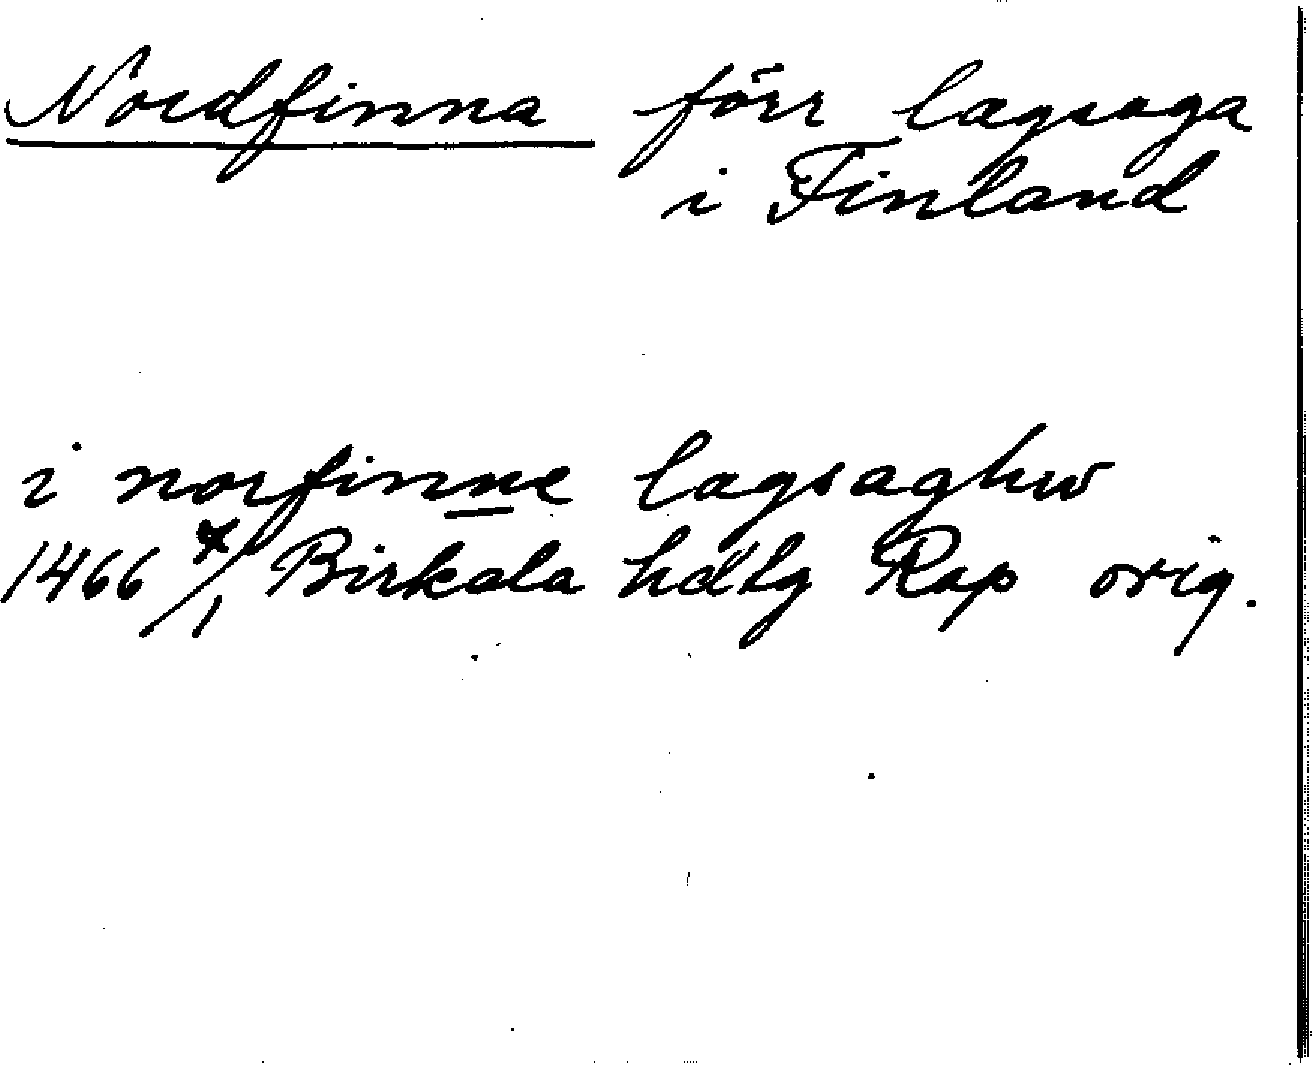 Nordfinna förr lagsaga
i Finland
i norfinne lagsaghw
1466 7/1 Birkala hd Rap orig.